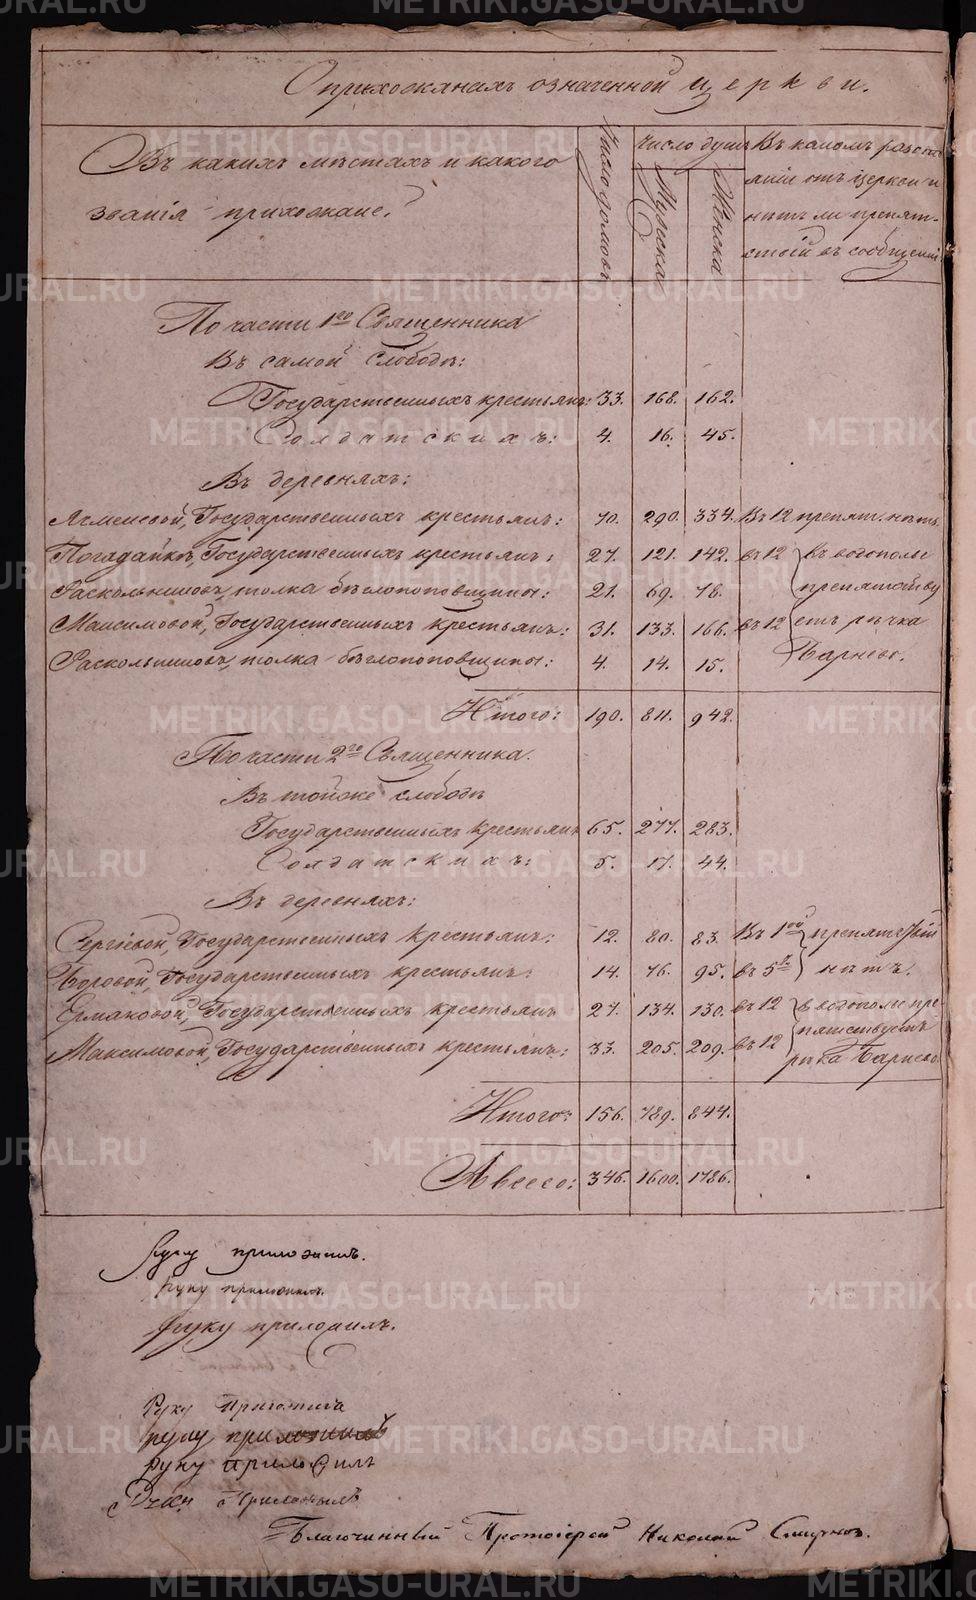 О прихожанахъ означенной церкви.
Въ какихъ мѣстахъ и какого званія прихожане.
Число домовъ
Число душъ
Мужеска
Женска
Въ какомъ разстояніи отъ церкви и нѣтъ ли препятствій въ сообщеніи.
По части 1го Священника
Въ самой слободѣ:
Государственныхъ крестьянъ: 33. 168. 162.
Солдатскихъ: 4. 16. 45.
Въ деревняхъ:
Ячменевой, Государственныхъ крестьянъ: 70. 290. 334. Въ 12 препят. нѣтъ
Погадайкѣ, Государственныхъ крестьянъ: 27. 121. 142. въ 12 въ водополь
Раскольниковъ толка бѣглопоповщины: 21. 69. 78. препятству
Максимовой, Государственныхъ крестьянъ: 31. 133. 166. въ 12 етъ рѣчка
Раскольниковъ толка бѣглопоповщины: 4. 14. 15. Барнева.
Итого: 190. 811. 942.
По части 2го Священника.
Въ тойже слободѣ
Государственныхъ крестьянъ 65. 277. 283.
Солдатскихъ: 5. 17. 44.
Въ деревняхъ:
Сергіевой, Государственныхъ крестьянъ: 12. 80. 83. Въ 1ой препятствій
Боровой, Государственныхъ крестьянъ: 14. 76. 95. въ 5ти нѣтъ.
Ермаковой, Государственныхъ крестьянъ 27. 134. 130. въ 12 в водополь пре
Максимовой, Государственныхъ крестьянъ: 33. 205. 209. въ 12 пятствуетъ
рѣка Барнева
Итого: 156. 789. 844.
А всего: 346. 1600. 1786.
Руку приложилъ.
Руку приложилъ.
Руку приложилъ.
Руку приложилъ
руку приложилъ
руку приложилъ
Руку Приложилъ
Благочинный Протоіерей Николай Смирнов.
METRIKI.GASO-URAL.RU